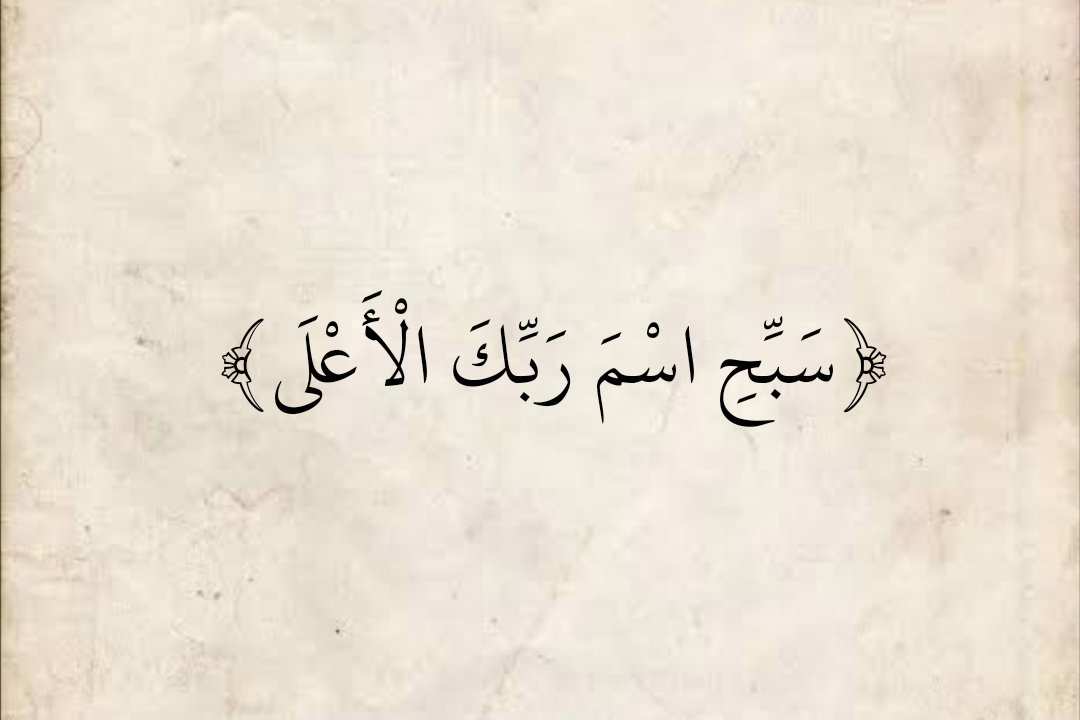 ﴿ سَبِّحِ اسْمَ رَبِّكَ الْأَعْلَى ﴾